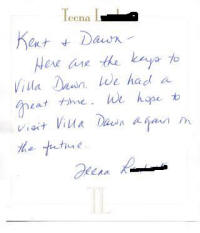 Teena L
Kent + Dawn -
Here are the keys to
Villa Dawn. We had a
great time. We hope to
visit Villa Dawn again in
the future.
Teena
TL